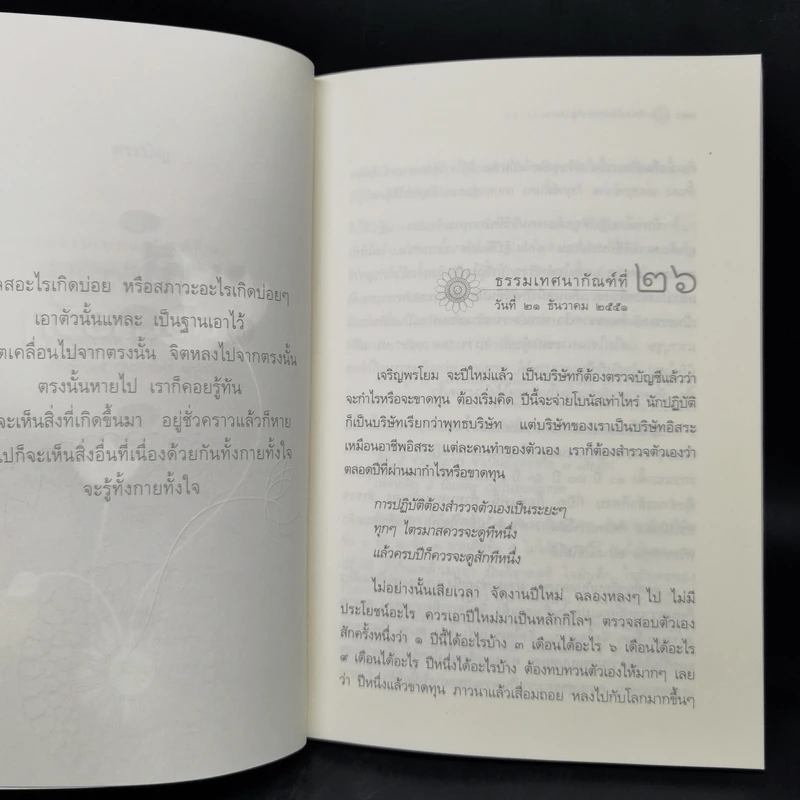 อะไรเกิดบ่อย หรือสภาวะอะไรเกิดบ่อยๆ
เอาตัวนั้นแหละ เป็นฐานเอาไว้
เคลื่อนไปจากตรงนั้น จิตหลงไปจากตรงนั้น
ตรงนั้นหายไป เราก็คอยรู้ทัน
จะเห็นสิ่งที่เกิดขึ้นมา อยู่ชั่วคราวแล้วก็หาย
ก็จะเห็นสิ่งอื่นที่เนื่องด้วยกันทั้งกายทั้งใจ
จะรู้ทั้งกายทั้งใจ
ธรรมเทศนากัณฑ์ที่ ๒๖
วันที่ ๒๑ ธันวาคม ๒๕๕๑
เจริญพรโยม จะปีใหม่แล้ว เป็นบริษัทก็ต้องตรวจบัญชีแล้วว่า
จะกำไรหรือจะขาดทุน ต้องเริ่มคิด ปีนี้จะจ่ายโบนัสเท่าไหร่ นักปฏิบัติ
ก็เป็นบริษัทเรียกว่าพุทธบริษัท แต่บริษัทของเราเป็นบริษัทอิสระ
เหมือนอาชีพอิสระ แต่ละคนทำของตัวเอง เราก็ต้องสำรวจตัวเองว่า
ตลอดปีที่ผ่านมากำไรหรือขาดทุน
การปฏิบัติต้องสำรวจตัวเองเป็นระยะๆ
ทุกๆ ไตรมาสควรจะดูทีหนึ่ง
แล้วครบปีก็ควรจะดูสักทีหนึ่ง
ไม่อย่างนั้นเสียเวลา จัดงานปีใหม่ ฉลองหลงๆ ไป ไม่มี
ประโยชน์อะไร ควรเอาปีใหม่มาเป็นหลักกิโลฯ ตรวจสอบตัวเอง
สักครั้งหนึ่งว่า ๑ ปีนี้ได้อะไรบ้าง ๓ เดือนได้อะไร ๖ เดือนได้อะไร
๙ เดือนได้อะไร ปีหนึ่งได้อะไรบ้าง ต้องทบทวนตัวเองให้มากๆ เลย
ว่า ปีหนึ่งแล้วขาดทุน ภาวนาแล้วเสื่อมถอย หลงไปกับโลกมากขึ้นๆ